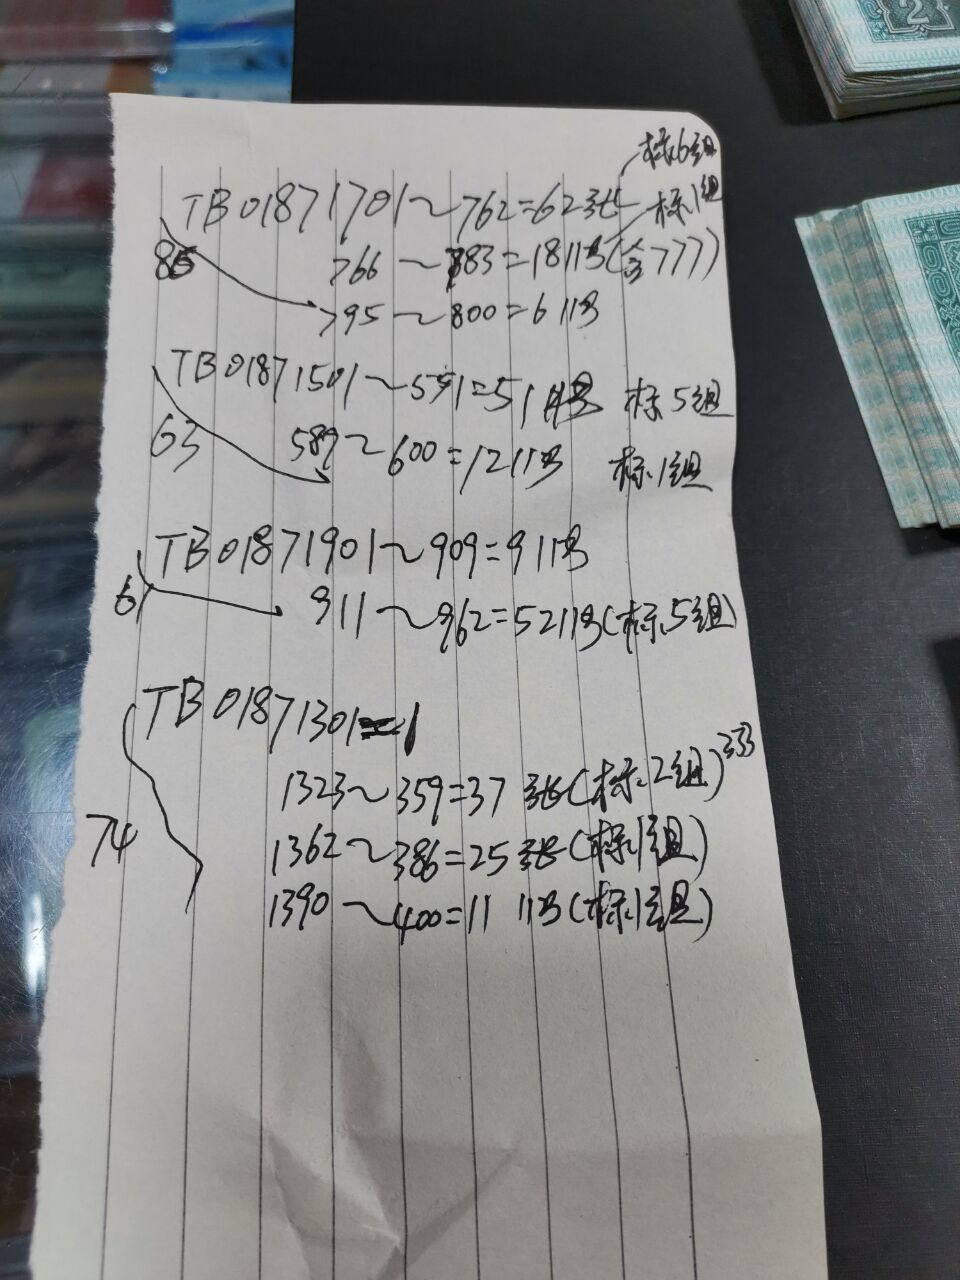 标6组
TB01871701～762=62张 标1组
86 766～783=18 11号(含777)
795～800=6 11号
TB01871501～551=51 11号 标5组
63 589～600=12 11号 标1组
TB01871901～909=9 11号
61 911～962=52 11号(标5组)
TB01871301=1
1323～359=37 张(标2组)333
74 1362～386=25 张(标1组)
1390～400=11 11号(标1组)
2